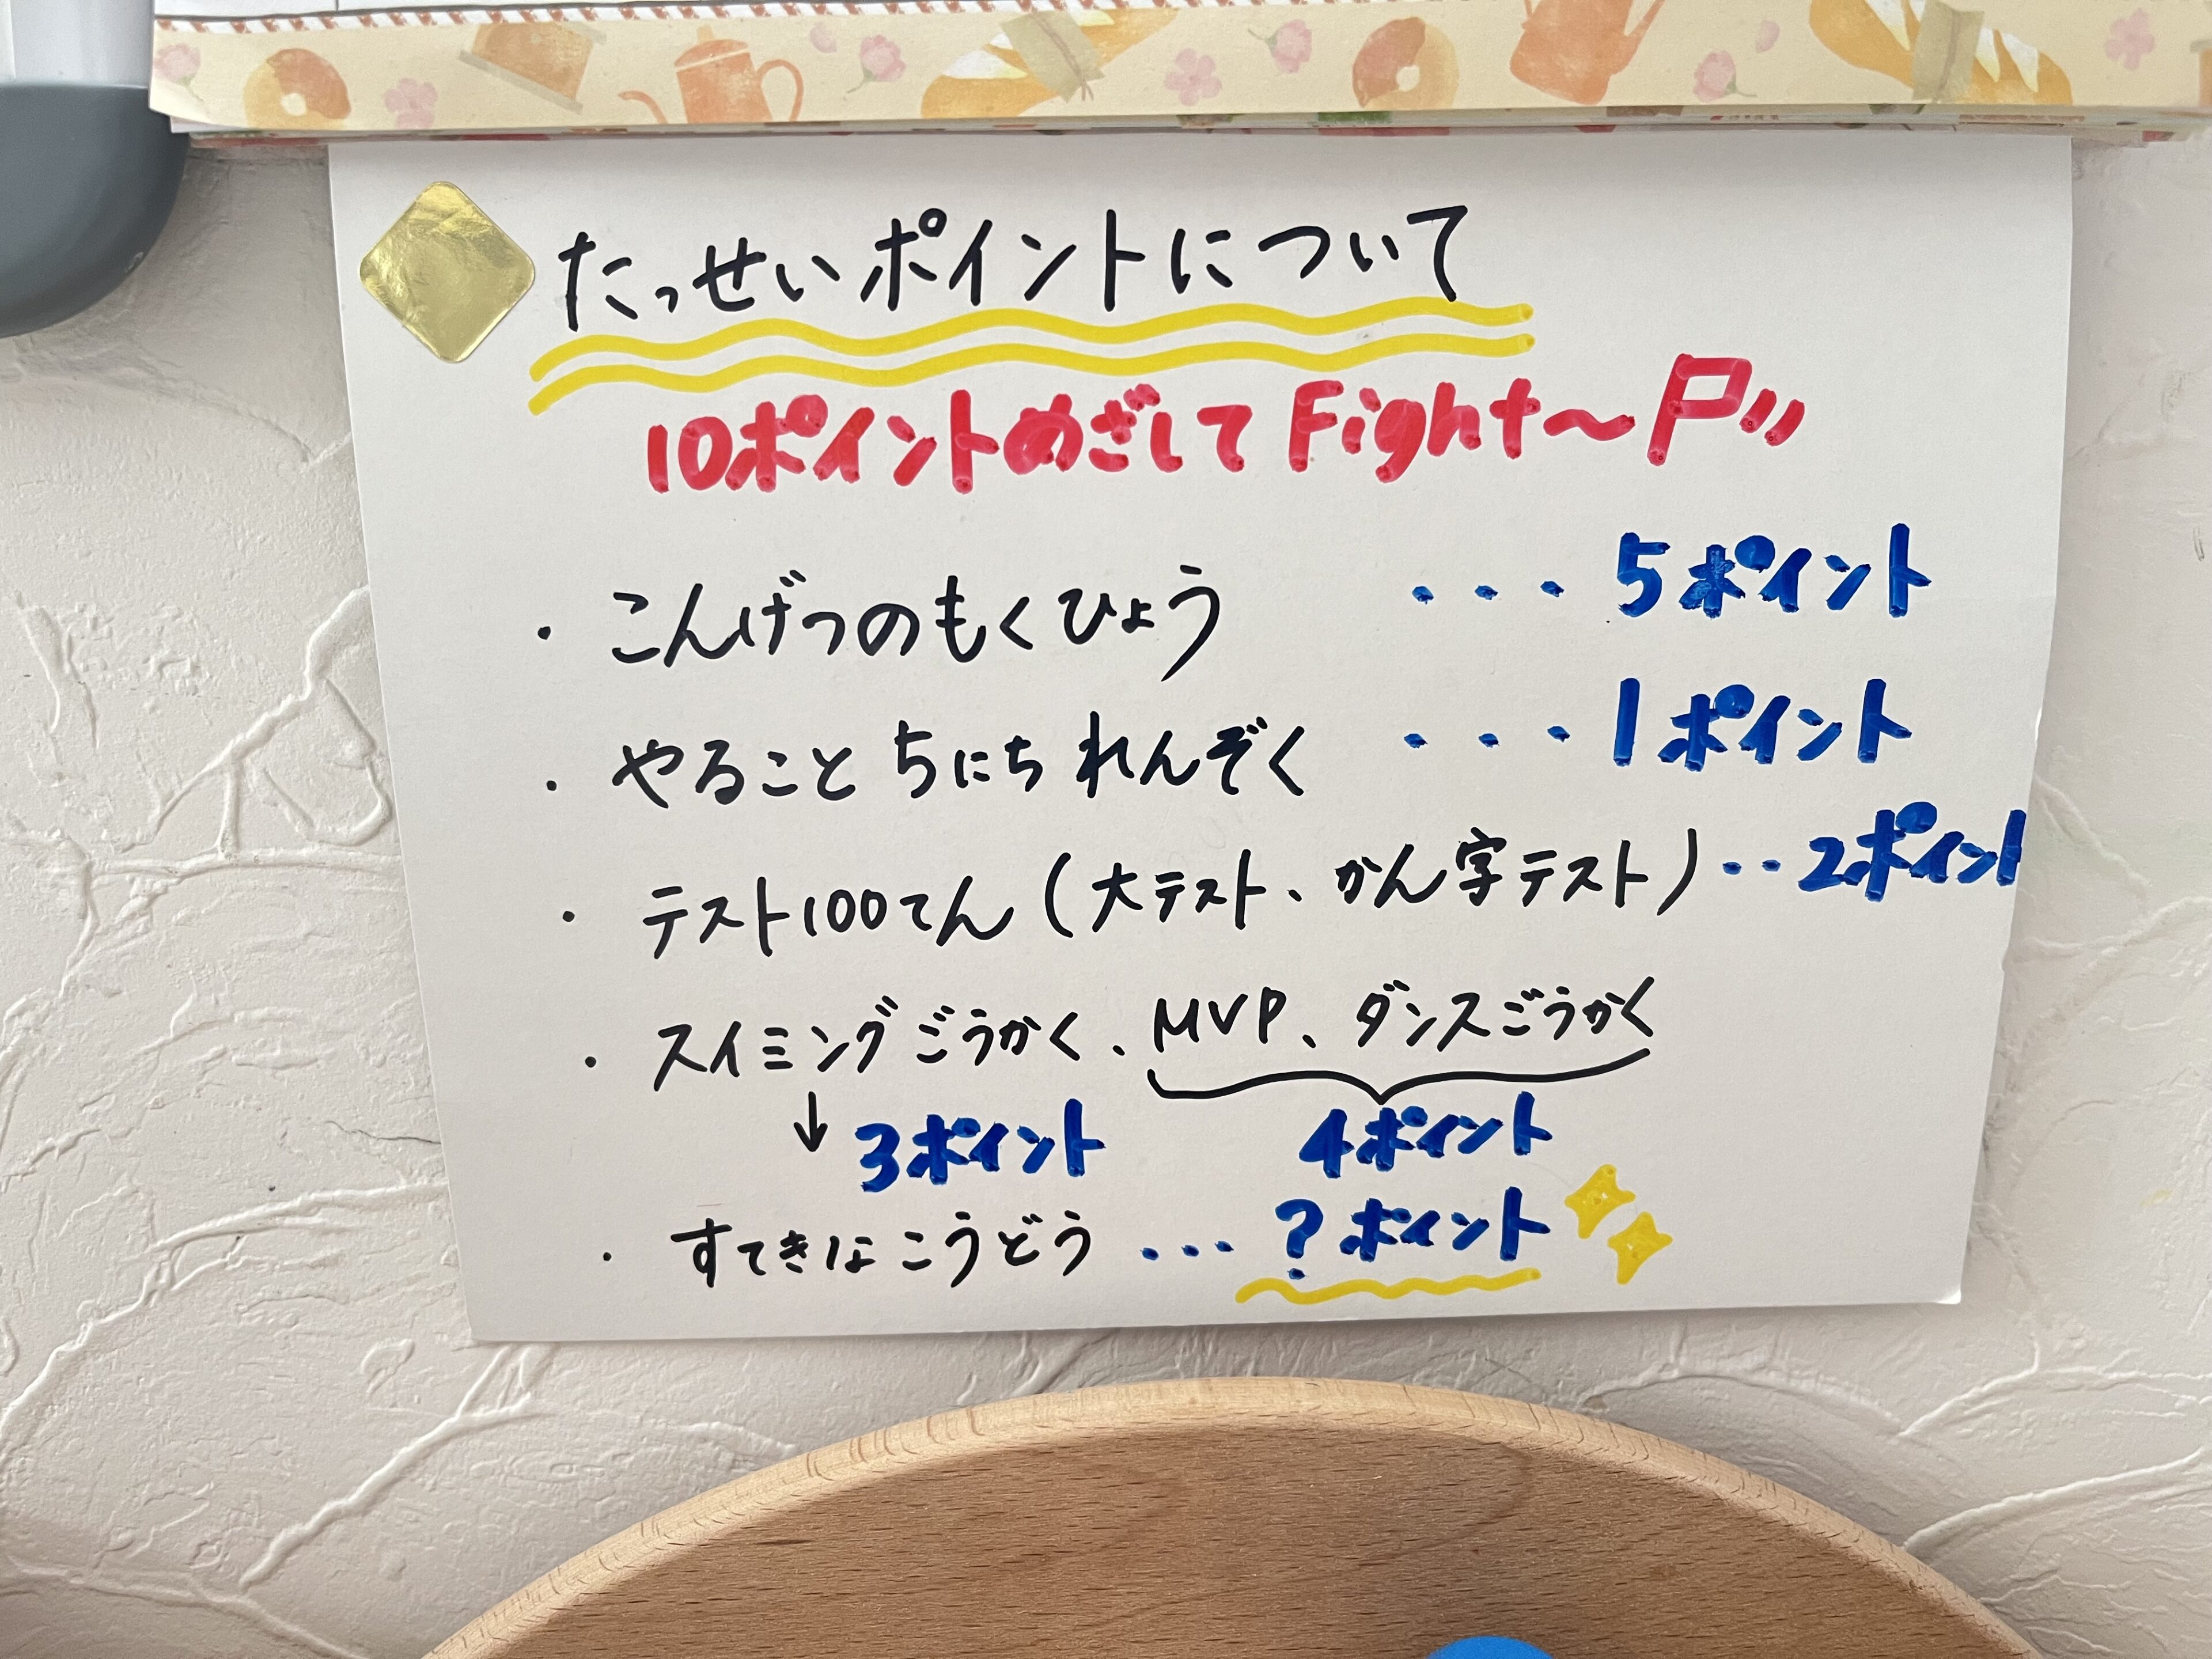 たっせいポイントについて
10ポイントめざして Fight〜
・こんげつのもくひょう ・・・5ポイント
・やること 5にち れんぞく ・・・1ポイント
・テスト100てん(大テスト、かん字テスト)・・2ポイント
・スイミングごうかく、MVP、ダンスごうかく
↓3ポイント 4ポイント
・すてきな こうどう ・・・?ポイント